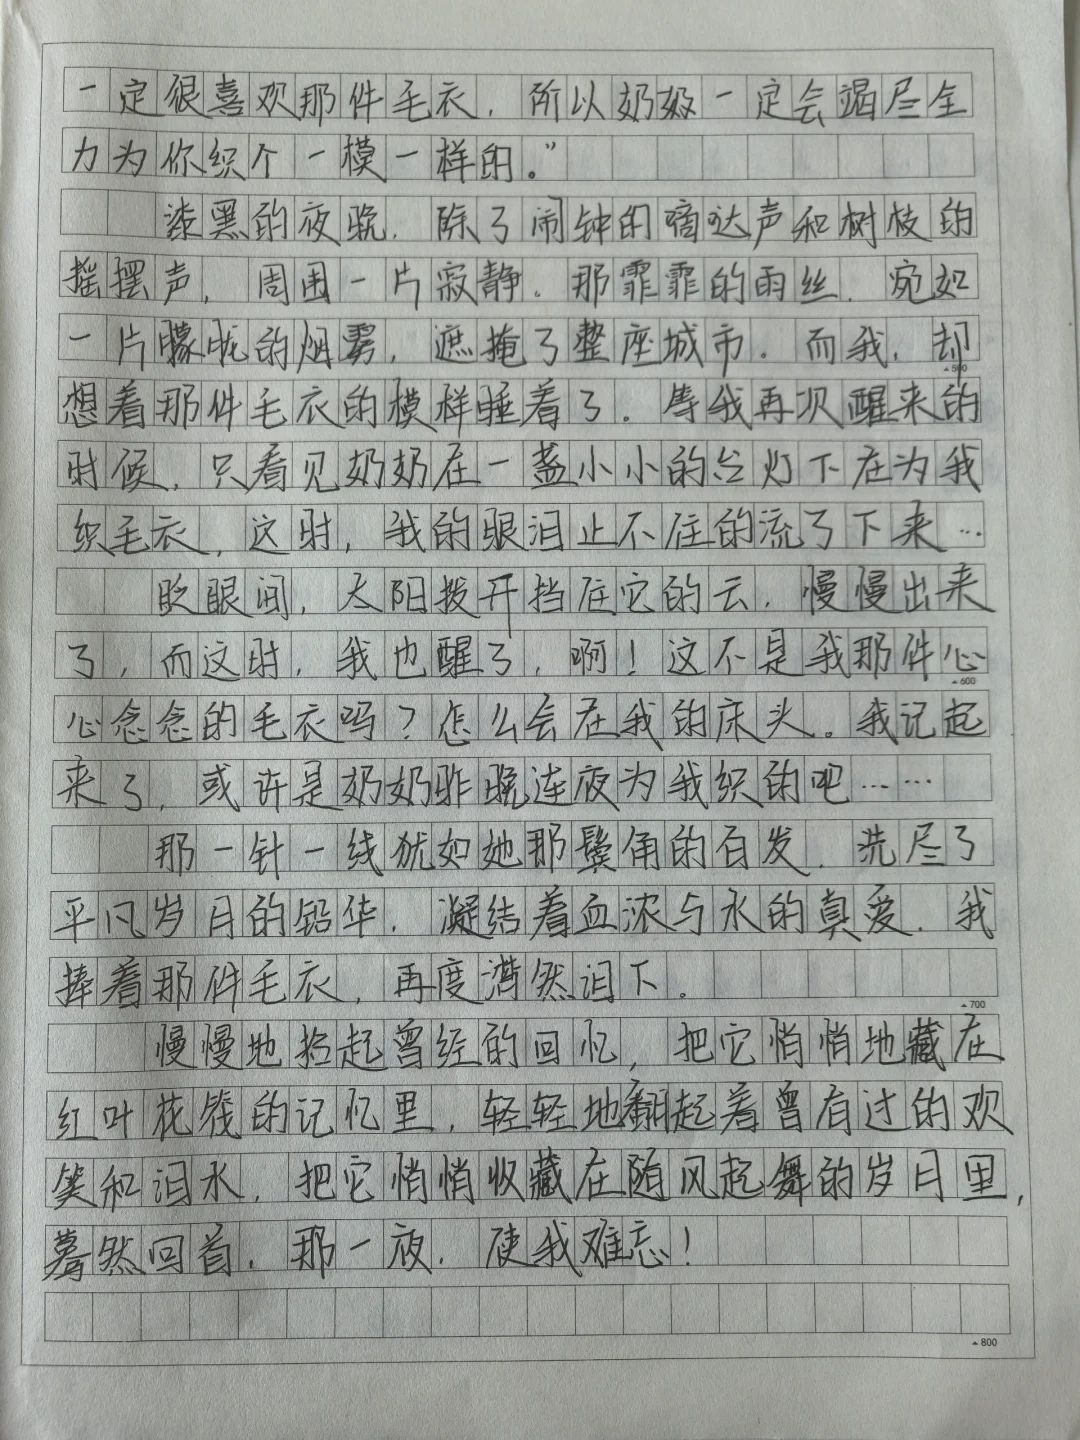 一定很喜欢那件毛衣，所以奶奶一定会竭尽全
力为你织个一模一样的。”
漆黑的夜晚，除了闹钟的嘀达声和树枝的
摇摆声，周围一片寂静。那霏霏的雨丝，宛如
一片朦胧的烟雾，遮掩了整座城市。而我，却
500
想着那件毛衣的模样睡着了。等我再次醒来的
时候，只看见奶奶在一盏小小的台灯下在为我
织毛衣，这时，我的眼泪止不住的流了下来…
眨眼间，太阳拨开挡住它的云，慢慢出来
了，而这时，我也醒了，啊！这不是我那件心
600
心念念的毛衣吗？怎么会在我的床头。我记起
来了，或许是奶奶昨晚连夜为我织的吧……
那一针一线犹如她那鬓角的白发，洗尽了
平凡岁月的铅华，凝结着血浓与水的真爱，我
捧着那件毛衣，再度潸然泪下。
700
慢慢地拾起曾经的回忆，把它悄悄地藏在
红叶花笺的记忆里，轻轻地翻起着曾有过的欢
笑和泪水，把它悄悄收藏在随风起舞的岁月里，
蓦然回首，那一夜，使我难忘！
800